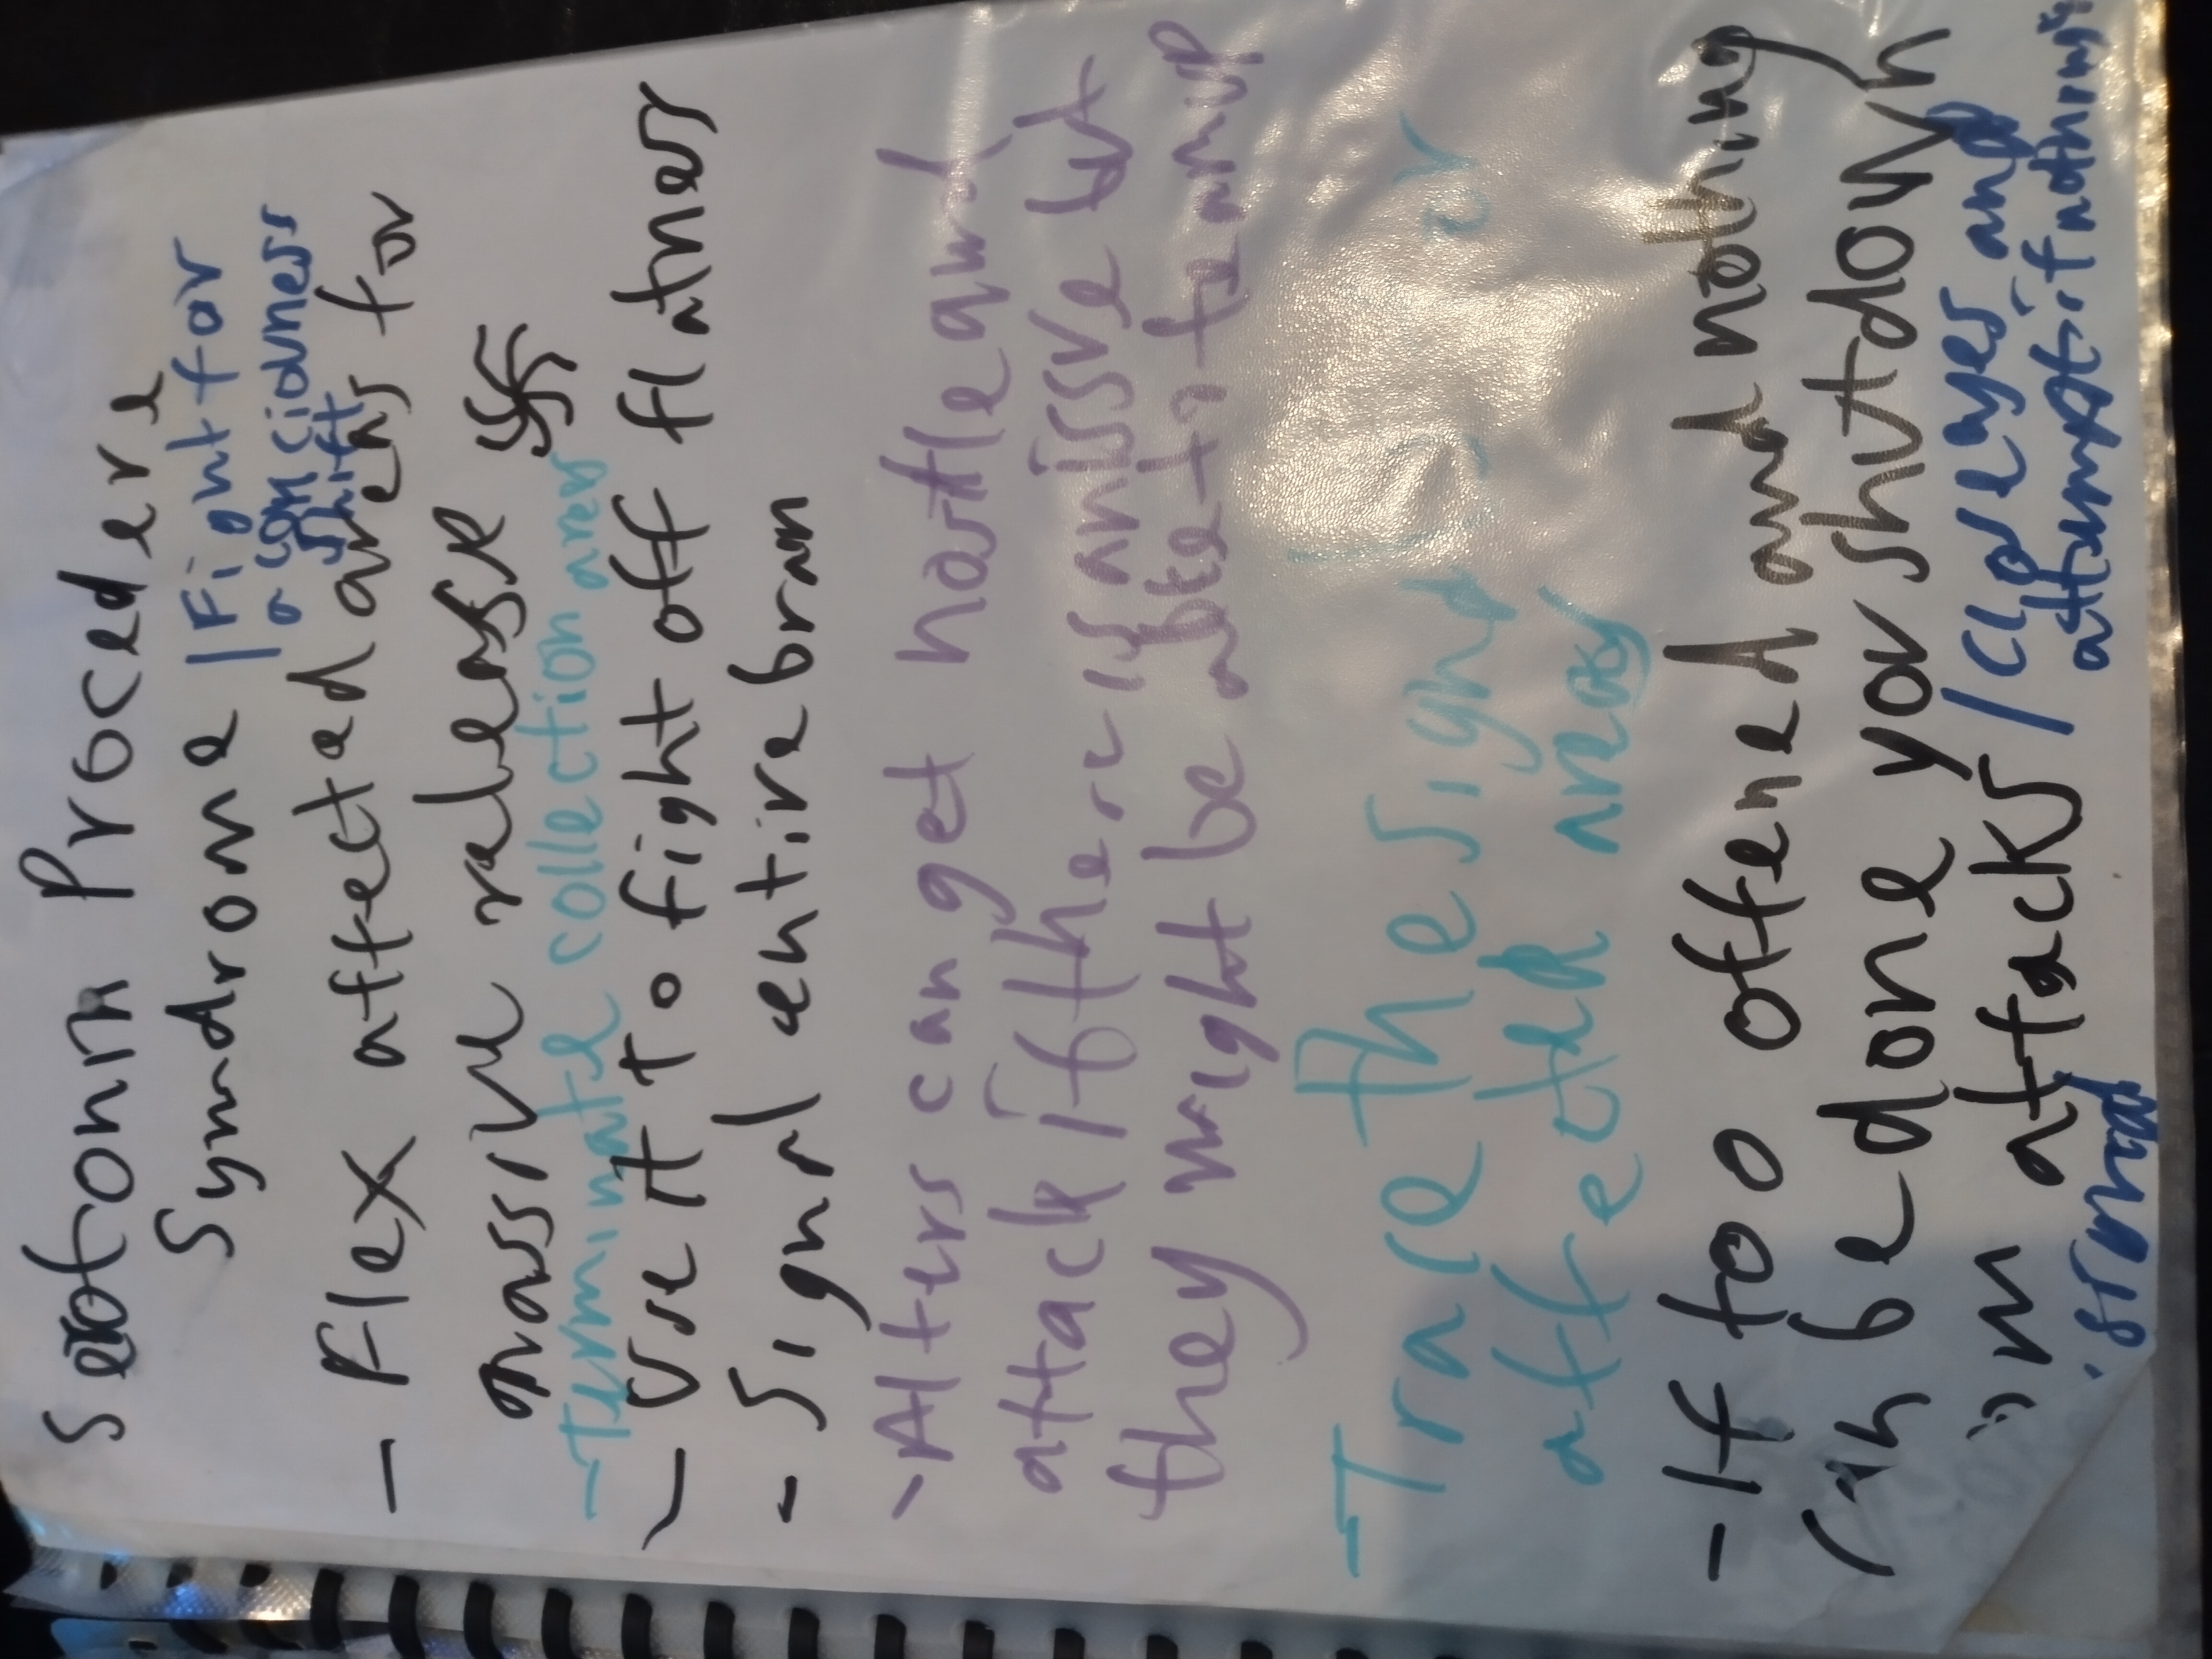 Procedere
Syndrome | Fight for
a conciouness
shift
- Flex affected areas for
massive release
- Terminate collection area
- Use it to fight off flatner
- Signal entire bran
- Alters can get hostle and
attack if there is an issve but
they might be
- Trace the signal
affected
- If too offend and nothing
can be done you shutdown
in attacks / Clos eyes and
if nothing
is